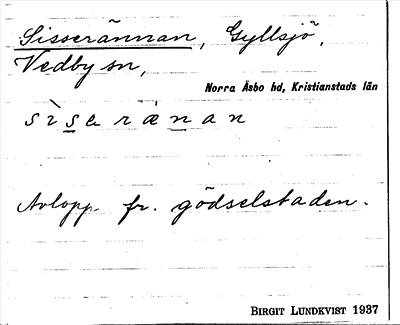 Sisserännan, Gyllsjö,
Vedby sn,
Norra Åsbo hd, Kristianstads län
s ì s e r ä n a n
Avlopp fr. gödselstaden.
BIRGIT LUNDKVIST 1937